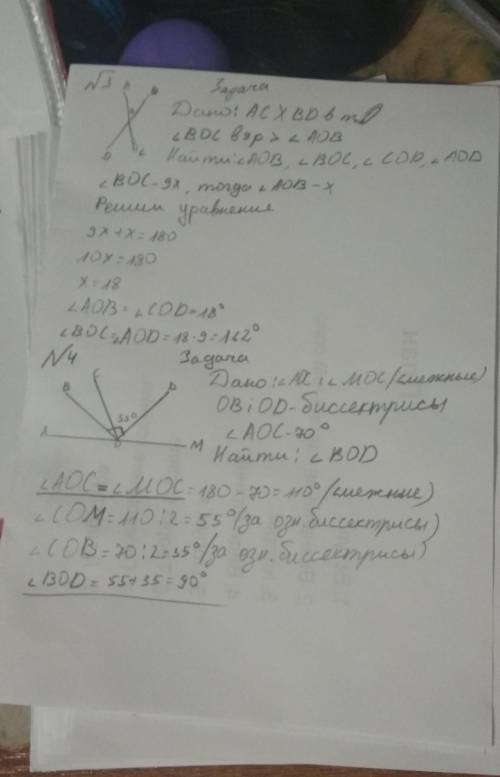 №3 Задача
A B
O
D C
Дано: AC X BD в т.О
∠BOC в 9р > ∠AOB
Найти: ∠AOB, ∠BOC, ∠COD, ∠AOD
∠BOC - 9x, тогда ∠AOB - x
Решим уравнения
9x + x = 180
10x = 180
x = 18
∠AOB = ∠COD = 18°
∠BOC = ∠AOD = 18 · 9 = 162°
№4 Задача
B C D
55°
A O M
Дано: ∠ ∠MOC (смежные)
OB i OD - биссектрисы
∠AOC - 70°
Найти: ∠BOD
∠AOC = ∠MOC = 180 - 70 = 110° (смежные)
∠COM = 110 : 2 = 55° (за озн. биссектрисы)
∠COB = 70 : 2 = 35° (за озн. биссектрисы)
∠BOD = 55 + 35 = 90°